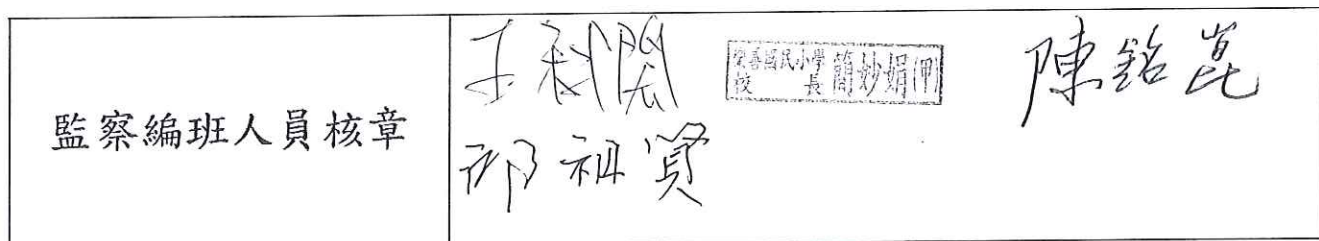 監察編班人員核章
樂善國民小學
校長 簡妙娟 (甲)
陳銘崑
邱祖賢